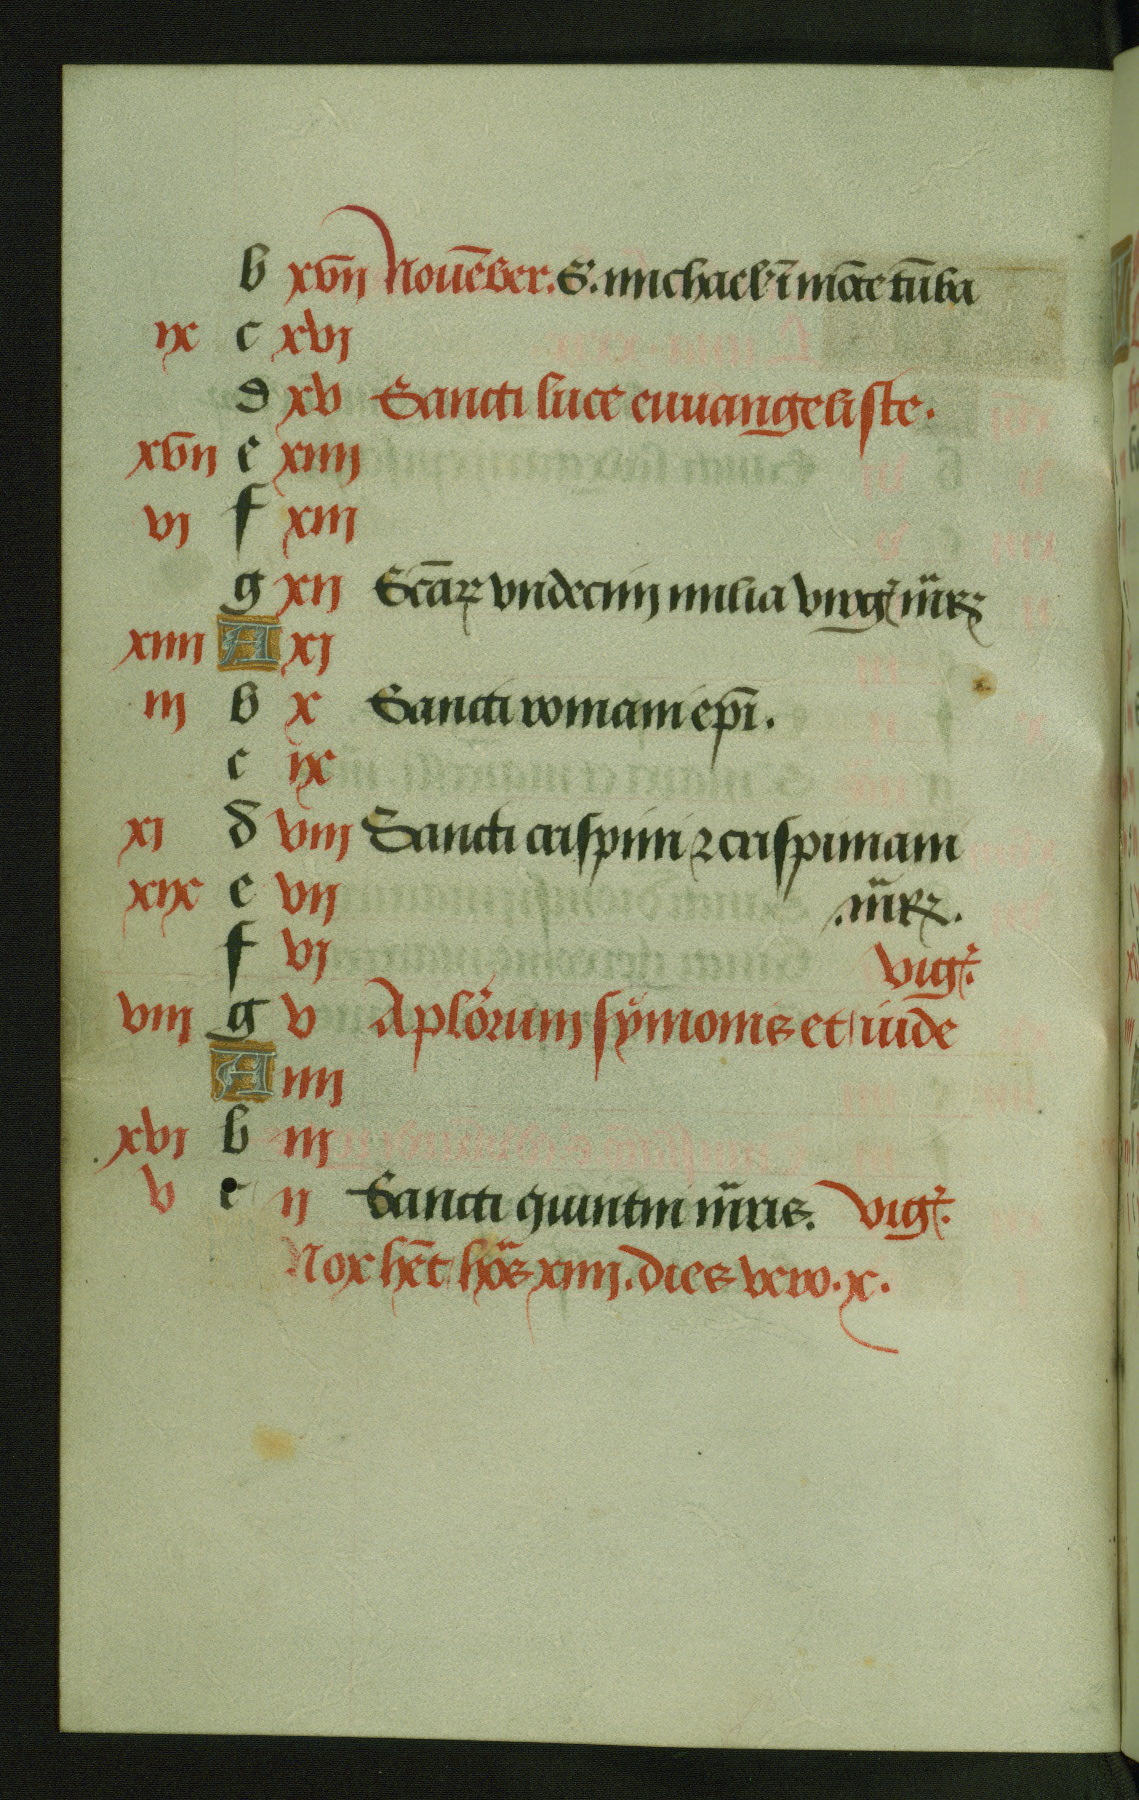 b xvii Nouēber. S. michael' ī mōte tūba
ix c xvi
d xv Sancti luce euuangeliste.
xvii e xiiii
vi f xiii
g xii Scāꝝ vndecim milia virgͥ mꝝ
xiiii A xi
iii b x Sancti romani epī.
c ix
xi d viii Sancti crispini ⁊ crispiniani
xix e vii .mꝝ.
f vi vigͥ.
viii g v Aplorum symonis et iude
A iiii
xvi b iii
v c ii Sancti quintin mris. vigͥ.
Nox hēt hoͣs xiiii. dies vero. x.